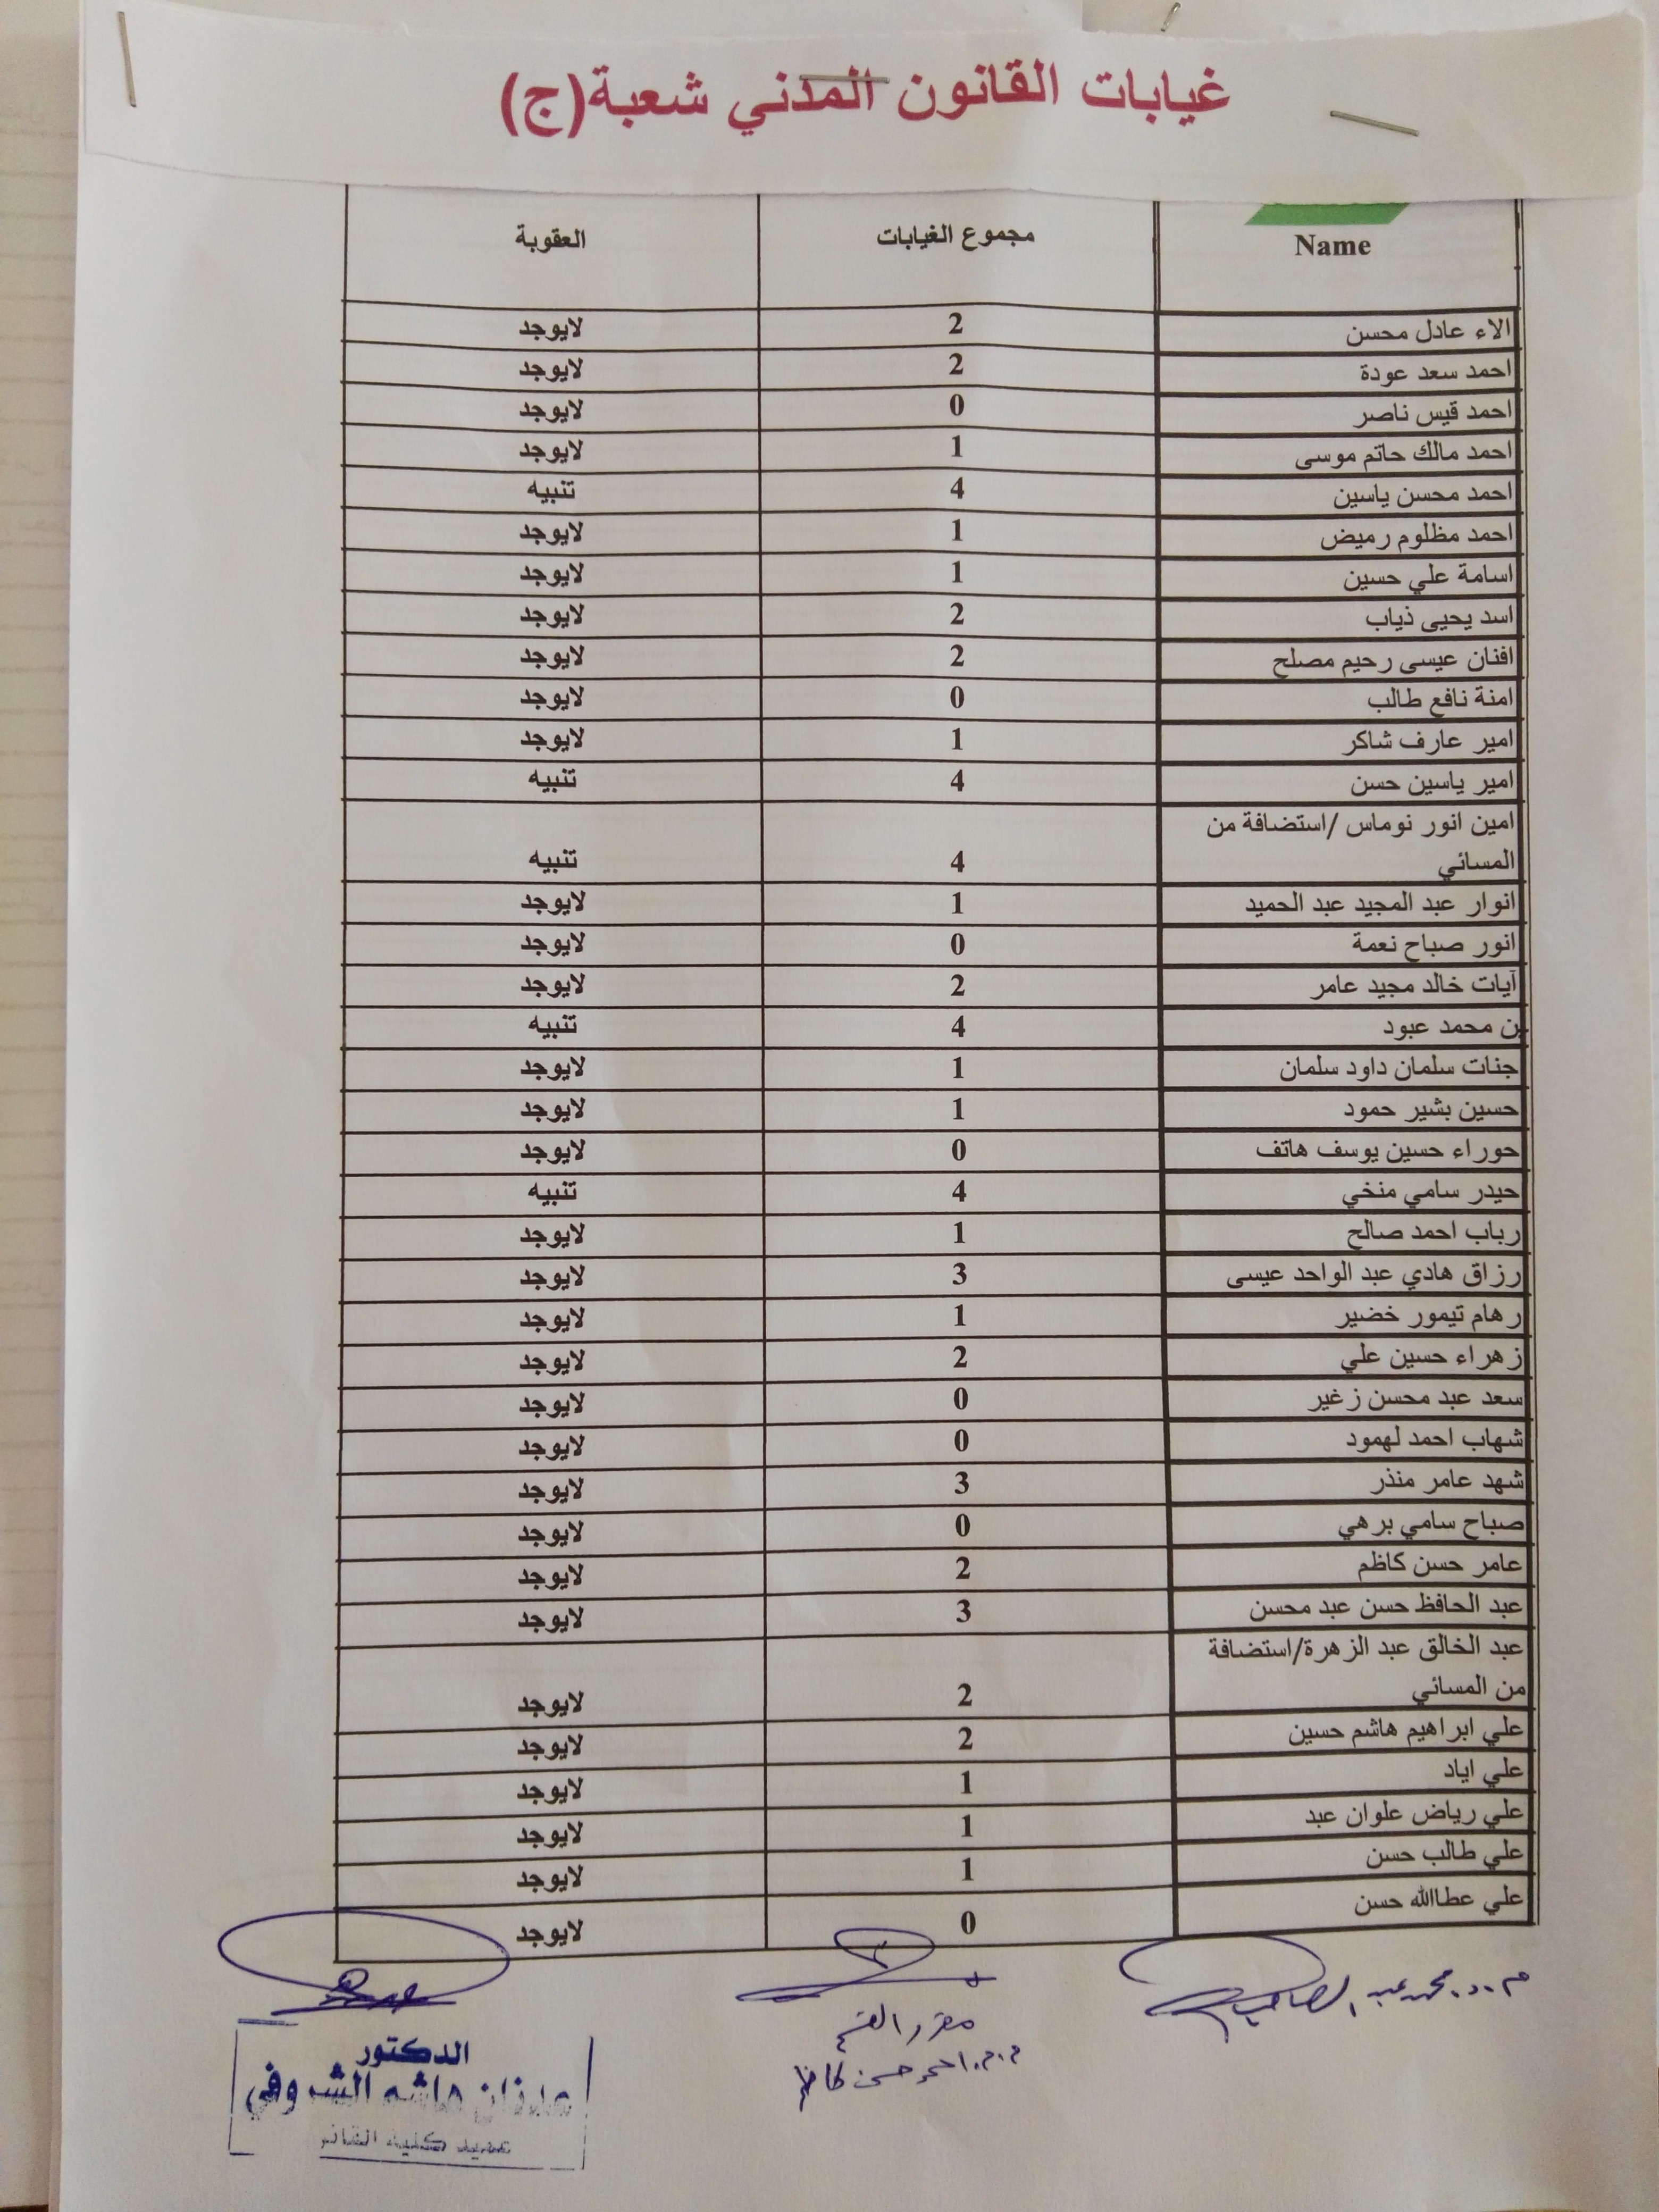 غيابات القانون المدني شعبة(ج)
Name مجموع الغيابات العقوبة
الاء عادل محسن 2 لايوجد
احمد سعد عودة 2 لايوجد
احمد قيس ناصر 0 لايوجد
احمد مالك حاتم موسى 1 لايوجد
احمد محسن ياسين 4 تنبيه
احمد مظلوم رميض 1 لايوجد
اسامة علي حسين 1 لايوجد
اسد يحيى ذياب 2 لايوجد
افنان عيسى رحيم مصلح 2 لايوجد
امنة نافع طالب 0 لايوجد
امير عارف شاكر 1 لايوجد
امير ياسين حسن 4 تنبيه
امين انور نوماس /استضافة من
المسائي 4 تنبيه
انوار عبد المجيد عبد الحميد 1 لايوجد
انور صباح نعمة 0 لايوجد
آيات خالد مجيد عامر 2 لايوجد
محمد عبود 4 تنبيه
جنات سلمان داود سلمان 1 لايوجد
حسين بشير حمود 1 لايوجد
حوراء حسين يوسف هاتف 0 لايوجد
حيدر سامي منخي 4 تنبيه
رباب احمد صالح 1 لايوجد
رزاق هادي عبد الواحد عيسى 3 لايوجد
رهام تيمور خضير 1 لايوجد
زهراء حسين علي 2 لايوجد
سعد عبد محسن زغير 0 لايوجد
شهاب احمد لهمود 0 لايوجد
شهد عامر منذر 3 لايوجد
صباح سامي برهي 0 لايوجد
عامر حسن كاظم 2 لايوجد
عبد الحافظ حسن عبد محسن 3 لايوجد
عبد الخالق عبد الزهرة/استضافة
من المسائي 2 لايوجد
علي ابراهيم هاشم حسين 2 لايوجد
علي اياد 1 لايوجد
علي رياض علوان عبد 1 لايوجد
علي طالب حسن 1 لايوجد
علي عطاالله حسن 0 لايوجد
م.د.محمد عبد الصاحب
مقرر القسم
م.م.احمد حسن كاظم
الدكتور
عدنان هاشم الشروفي
عميد كلية القانو